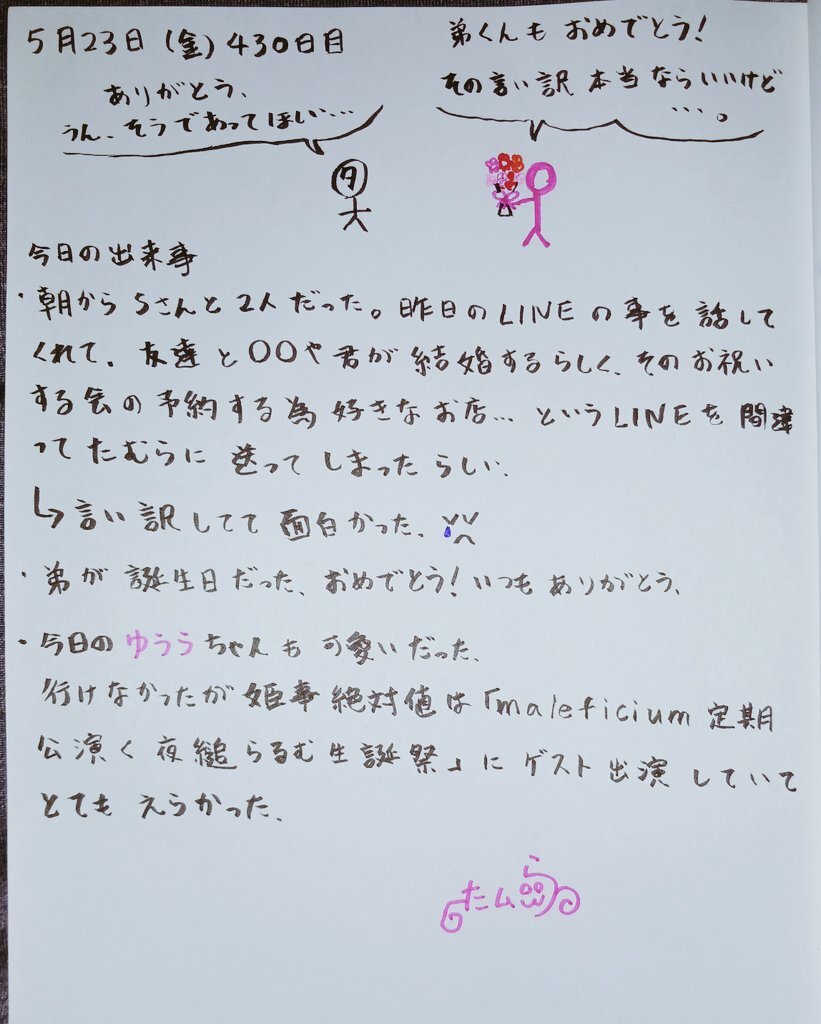 5月23日(金)430日目
弟くんもおめでとう!
その言い訳本当ならいいけど
…。
ありがとう、
うん、そうであってほしい…
タ
今日の出来事
・朝からSさんと2人だった。昨日のLINEの事を話して
くれて、友達と〇〇や君が結婚するらしく、そのお祝い
する会の予約する為好きなお店…というLINEを間違
ってたむらに送ってしまったらしい、
↳言い訳してて面白かった、
・弟が誕生日だった、おめでとう!いつもありがとう、
・今日のゆううちゃんも可愛いだった、
行けなかったが姫事絶対値は「maleficium定期
公演く夜縋らるむ生誕祭」にゲスト出演していて
とてもえらかった、
たムら